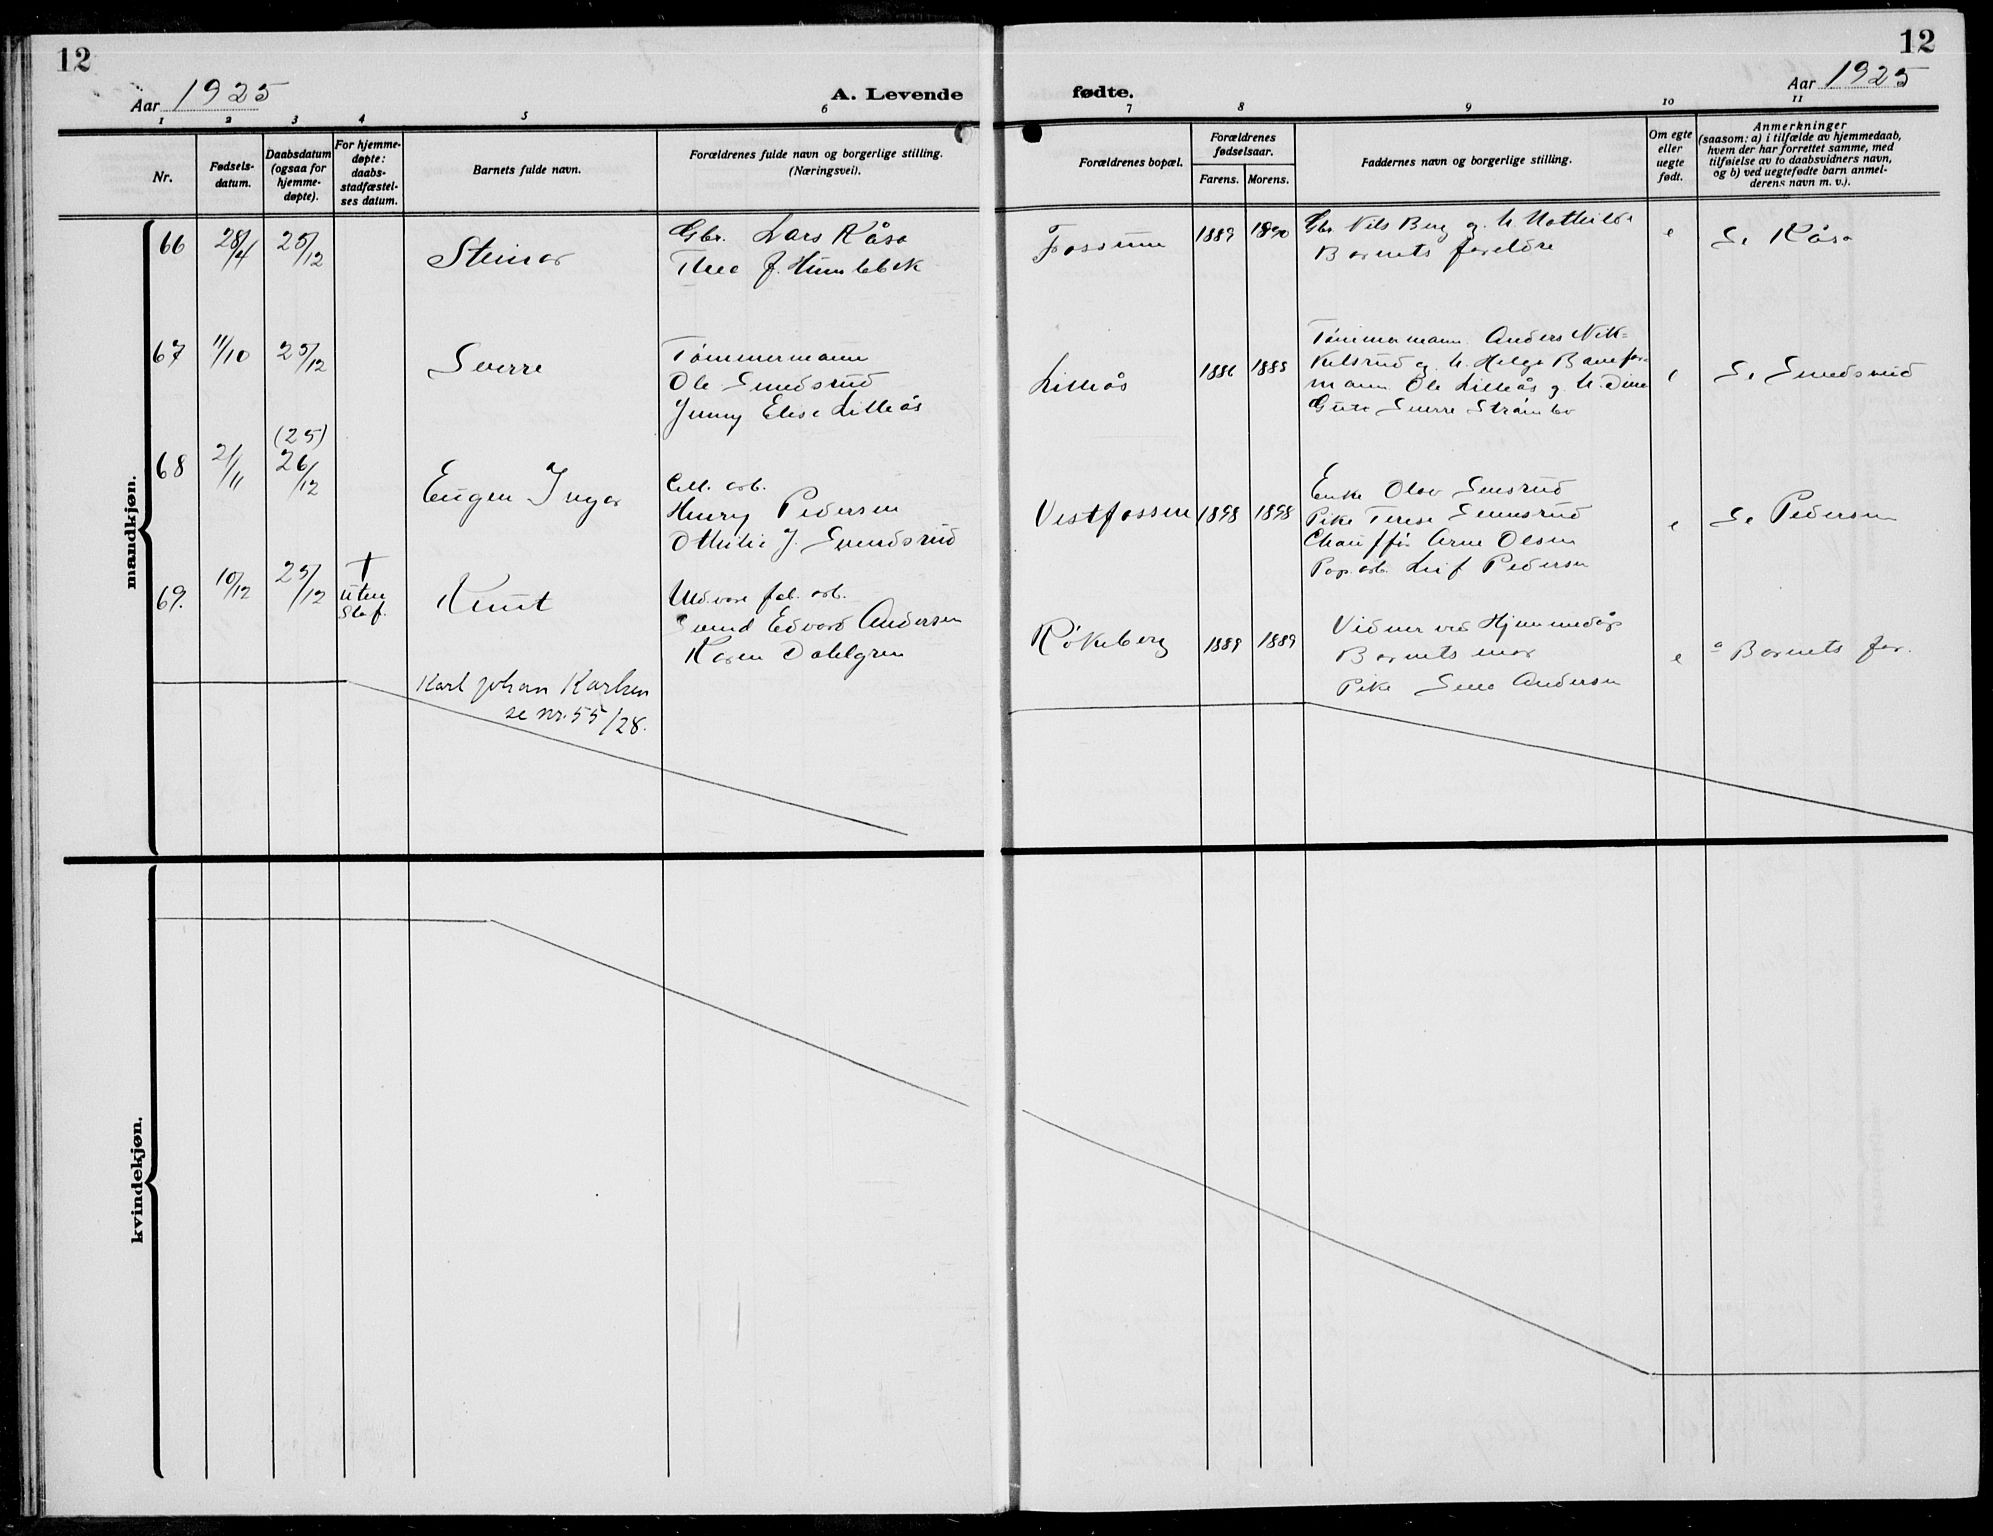 12
12
Aar 1925
A. Levende
fødte.
Aar 1925
1 2 3 4 5 6 7 8 9 10 11
Nr.
Fødsels-
datum.
Daabsdatum
(ogsaa for
hjemme-
døpte).
For hjemme-
døpte:
daabs-
stadfæstel-
ses datum.
Barnets fulde navn.
Forældrenes fulde navn og borgerlige stilling.
(Næringsvei).
Forældrenes bopæl.
Forældrenes
fødselsaar.
Farens. Morens.
Faddernes navn og borgerlige stilling.
Om egte
eller
uegte
født.
Anmerkninger
(saasom: a) i tilfælde av hjemmedaab,
hvem der har forrettet samme, med
tilføielse av to daabsvidners navn,
og b) ved uegtefødte barn anmel-
derens navn m. v.).
mandkjøn.
66 28/4 25/12
Steinar
Gbr. Lars Kåsa
Thea J. Humlebek
Fossum
1889 1890
Gbr. Nils Berg og h. Mathilde
Barnets foreldre
e
S. Kåsa
67 11/10 25/12
Sverre
Tømmermann
Ole Smedsrud
Jenny Elise Lilleås
Lilleås
1886 1885
Tømmermann Anders Nik-
kelsrud og h. Helga Banefor-
mann Ole Lilleås og h. Dina
Gute Sverre Strømbo
e
S. Smedsrud
68 2/11 (25)
26/12
Eugen Ingar
Cell. arb.
Henry Pedersen
Othilie J. Smedsrud
Vestfossen
1898 1898
Enke Olav
Pike Terese
Chauffør Arne Olsen
Pap. arb. Leif Pedersen
e
S. Pedersen
69. 10/12 25/12
†
uten
staf.
Knut
fab. arb.
Svend Edvard Andersen
Karen Dahlgren
Røkeberg
1889 1889
Vidner ved Hjemmedåp
Barnets mor
Pike Andersen
e
a Barnets far.
Karl Johan Karlsen
se nr. 55/28.
kvindekjøn.